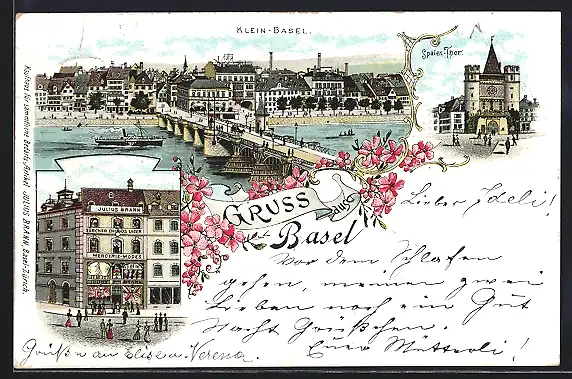 KLEIN-BASEL.
Spalen-Thor.
Kaufhaus für sämmtliche Bedarfs-Artikel JULIUS BRANN Basel-Zürich.
JULIUS BRANN
ZÜRCHER ENGROS LAGER
MERCERIE-MODES
GRUSS
AUS
Basel
Lieber Ideli!
Vor dem Schlafen
gehen, meinen zwei
Lieben noch ein Gut
Nacht Grüßchen.
Euer Mütterli!
Grüße an Elise u. Verena.